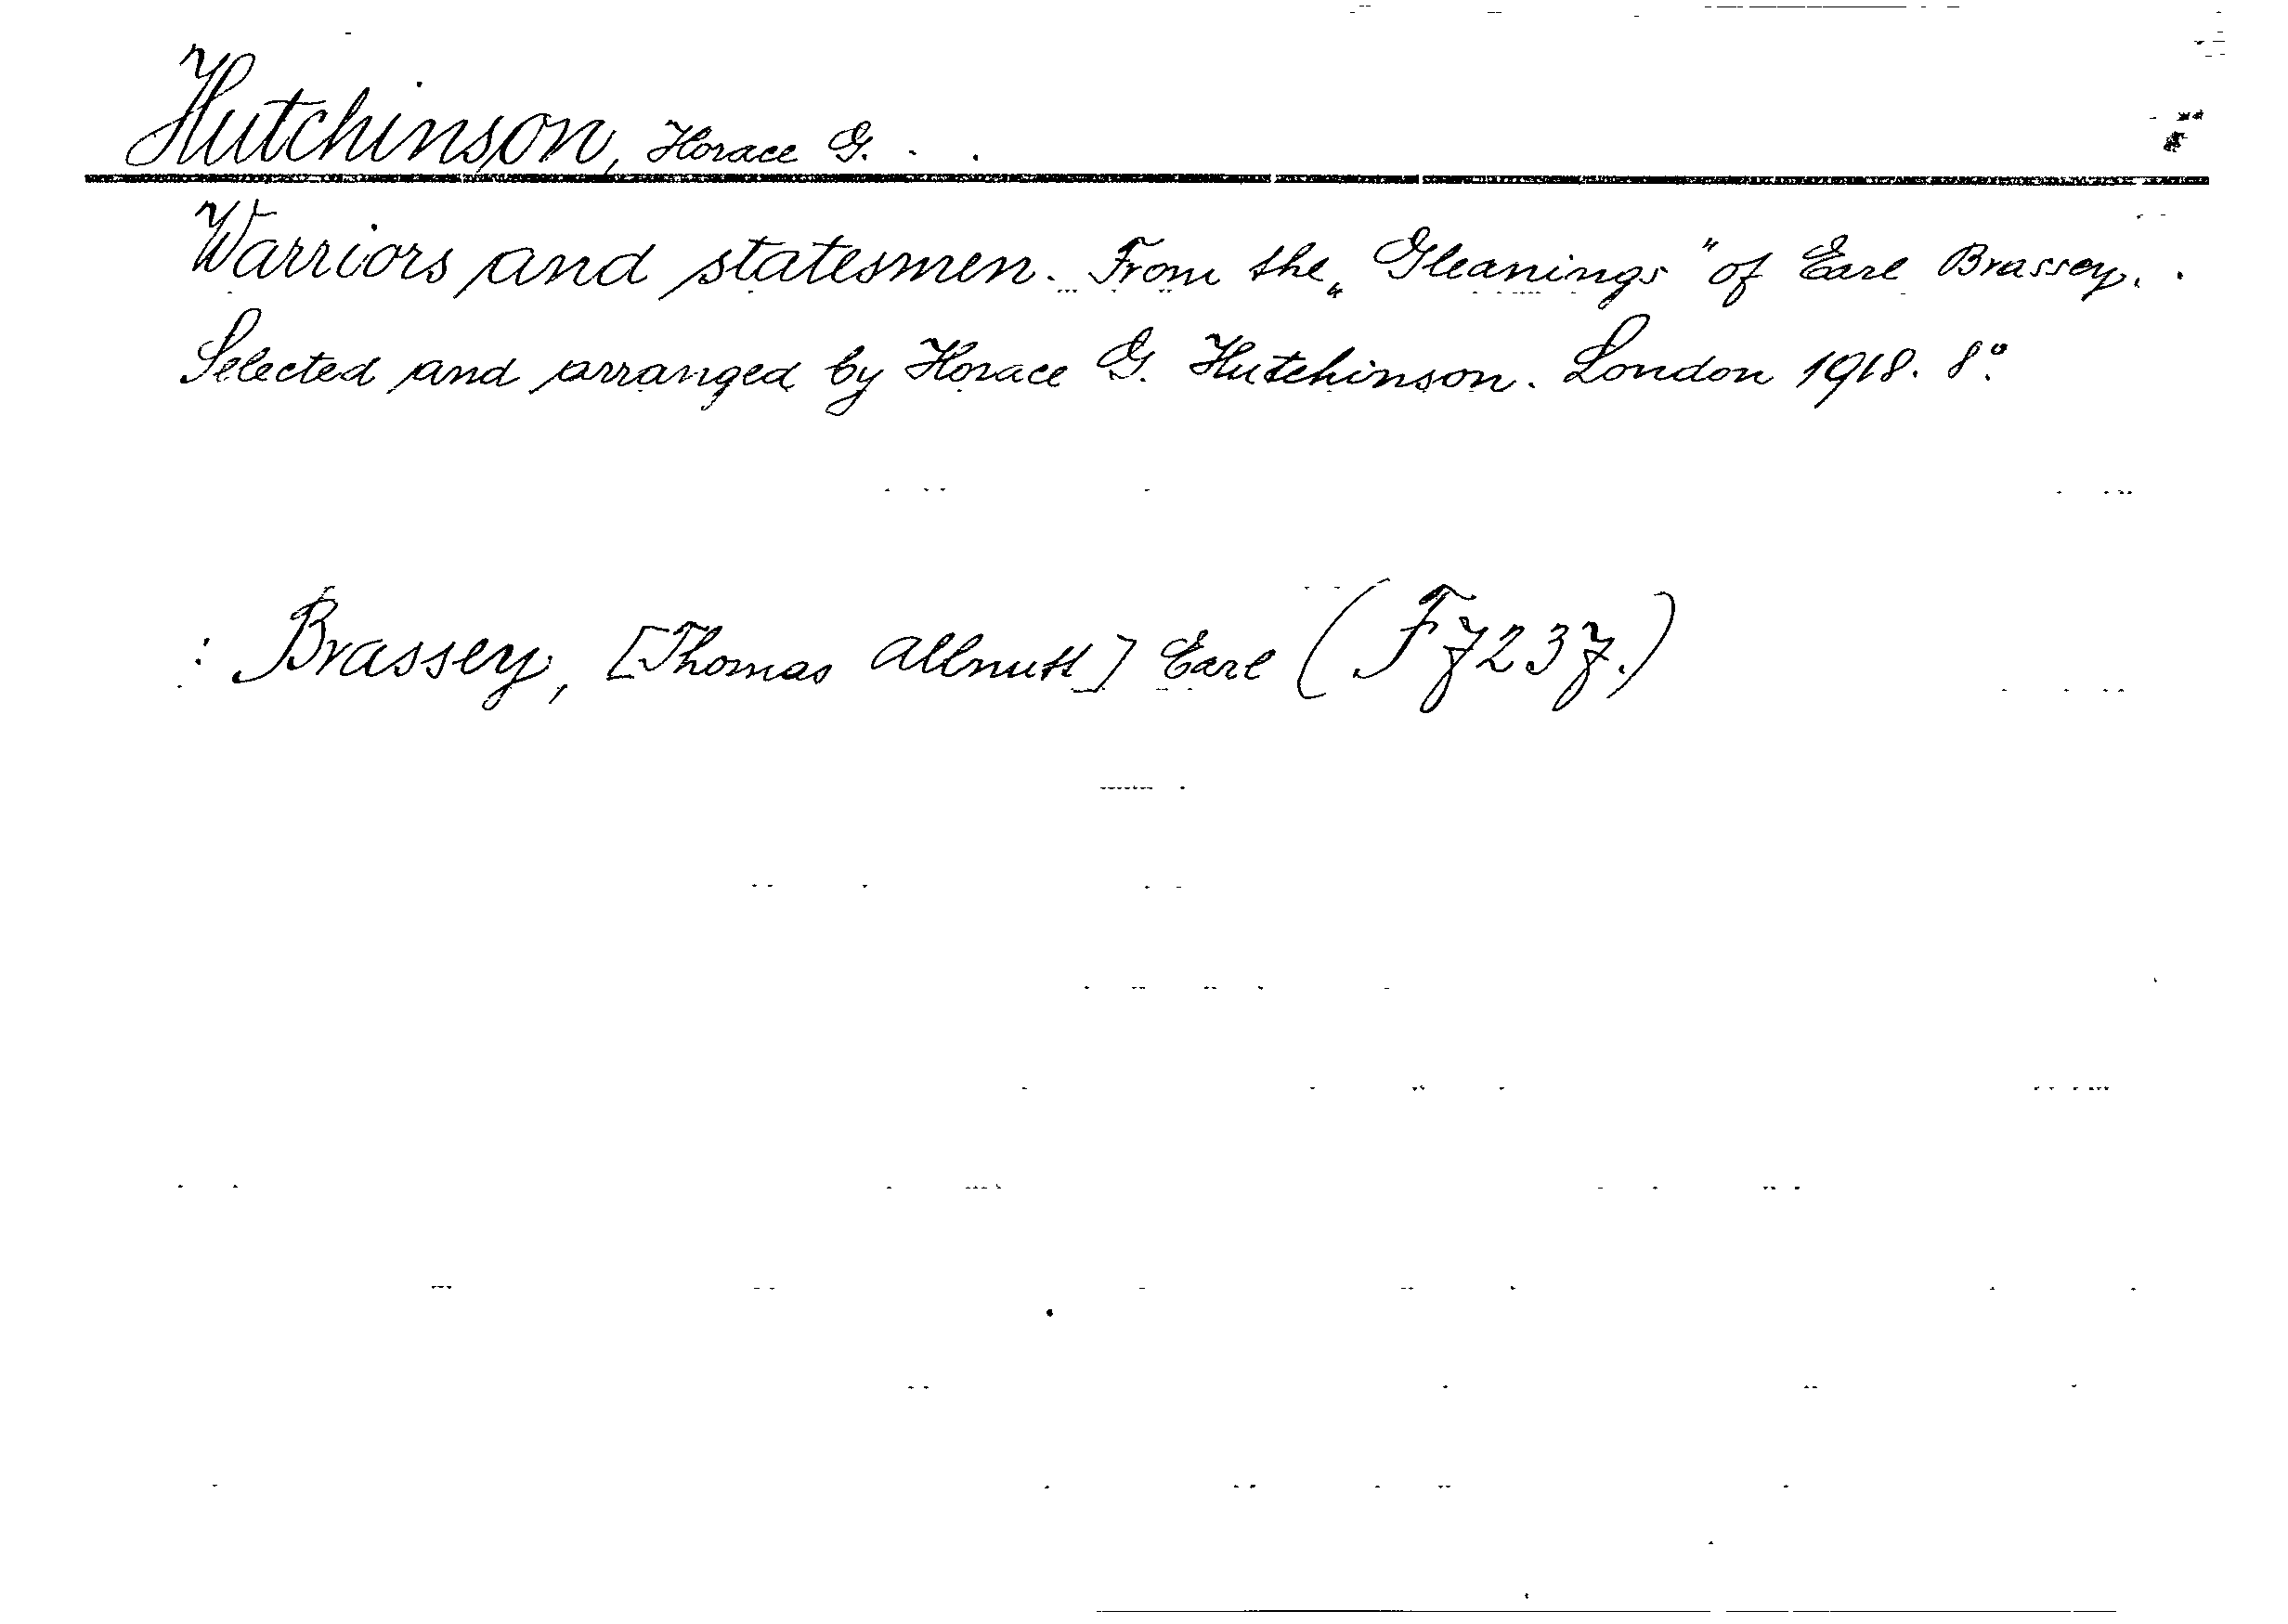 Hutchinson, Horace G.
Warriors and statesmen. From the „Gleanings" of Earl Brassey.
Selected and arranged by Horace G. Hutchinson. London 1918. 8°.
: Brassey, [Thomas Allnutt] Earl (F 7237.)